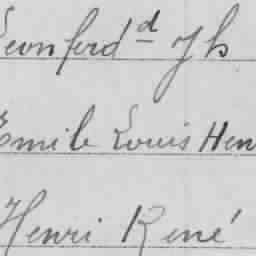 Leonford^d Jh
Emile Louis Hen
Henri René